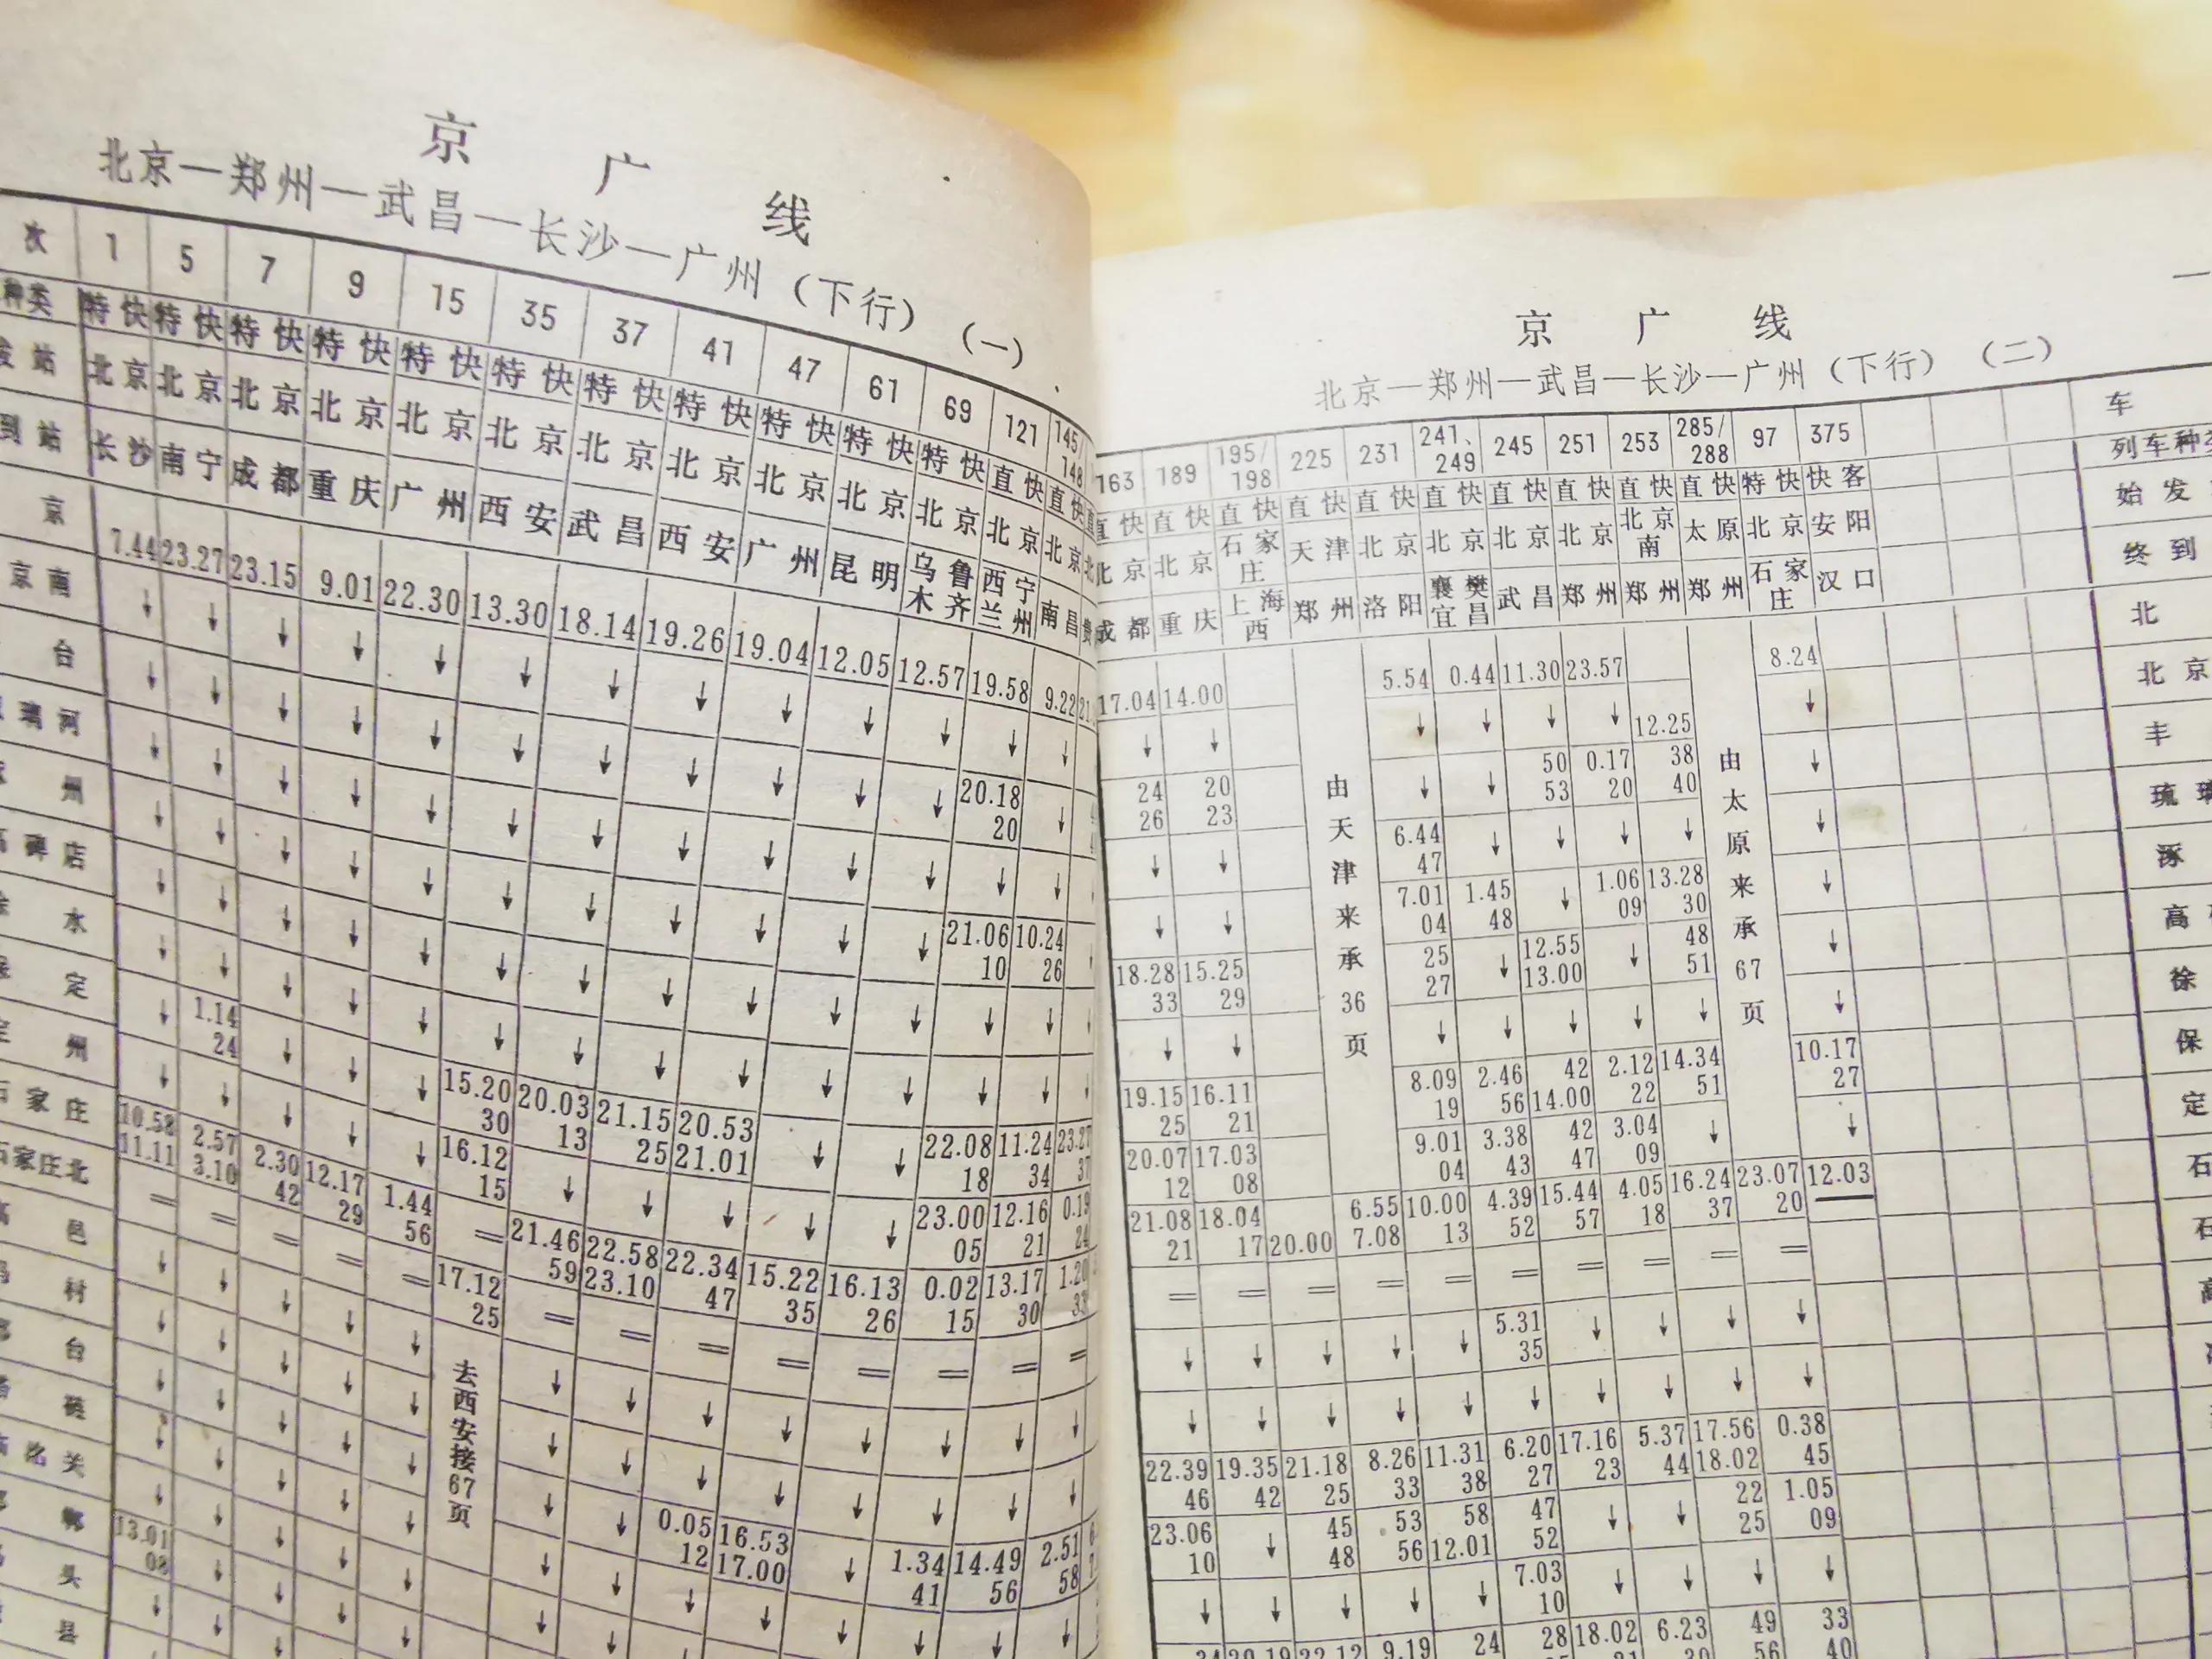 京 广 线
北京—郑州—武昌—长沙—广州（下行）（一）
次 1 5 7 9 15 35 37 41 47 61 69 121 145/148
种类 特快 特快 特快 特快 特快 特快 特快 特快 特快 特快 特快 直快 直快
站 北京 北京 北京 北京 北京 北京 北京 北京 北京 北京 北京 北京 北京
到站 长沙 南宁 成都 重庆 广州 西安 武昌 西安 广州 昆明 乌鲁木齐 西宁兰州 南昌
京 7.44 23.27 23.15 9.01 22.30 13.30 18.14 19.26 19.04 12.05 12.57 19.58 9.22
京南 ↓ ↓ ↓ ↓ ↓ ↓ ↓ ↓ ↓ ↓ ↓ ↓ ↓
台
20.18
20
璃河
州
21.06 10.24
10 26
碑店
水
定
1.14 15.20 20.03 21.15 20.53 22.08 11.24 23.27
24 30 13 25 21.01 18 34 37
州
16.12 23.00 12.16 0.19
15 05 21 24
石家庄
10.58 2.57 2.30 12.17 1.44 17.12 21.46 22.58 22.34 15.22 16.13 0.02 13.17 1.20
11.11 3.10 42 29 56 25 59 23.10 47 35 26 15 30 33
石家庄北 = = = = = = = = = = = = =
邑
村
台
0.05 16.53 1.34 14.49 2.51
12 17.00 41 56 58
关
郸
13.01
08
头
县
去西安接67页
京 广 线
北京—郑州—武昌—长沙—广州（下行）（二）
163 189 195/198 225 231 241、249 245 251 253 285/288 97 375 车
直快 直快 直快 直快 直快 直快 直快 直快 直快 直快 特快 快客 列车种类
北京 北京 石家庄 天津 北京 北京 北京 北京 北京南 太原 北京 安阳 始发
成都 重庆 上海西 郑州 洛阳 襄樊宜昌 武昌 郑州 郑州 郑州 石家庄 汉口 终到
17.04 14.00 5.54 0.44 11.30 23.57 8.24 北
↓ ↓ ↓ ↓ ↓ ↓ 12.25 ↓ 北京
24 20 ↓ ↓ 50 0.17 38 ↓ 丰
26 23 53 20 40
↓ ↓ 6.44 ↓ ↓ ↓ ↓ ↓ 琉璃
47
↓ ↓ 7.01 1.45 ↓ 1.06 13.28 ↓ 涿
04 48 09 30
18.28 15.25 25 ↓ 12.55 ↓ 48 ↓ 高
33 29 27 13.00 51
↓ ↓ ↓ ↓ ↓ ↓ ↓ ↓ 徐
19.15 16.11 8.09 2.46 42 2.12 14.34 10.17 保
25 21 19 56 14.00 22 51 27
20.07 17.03 9.01 3.38 42 3.04 ↓ ↓ 定
12 08 04 43 47 09
21.08 18.04 6.55 10.00 4.39 15.44 4.05 16.24 23.07 12.03 石
21 17 20.00 7.08 13 52 57 18 37 20
= = = = = = = = = = 石
↓ ↓ ↓ ↓ ↓ 5.31 ↓ ↓ ↓ ↓ 高
35
↓ ↓ ↓ ↓ ↓ ↓ ↓ ↓ ↓ ↓
22.39 19.35 21.18 8.26 11.31 6.20 17.16 5.37 17.56 0.38
46 42 25 33 38 27 23 44 18.02 45
23.06 ↓ 45 53 58 47 ↓ ↓ 22 1.05
10 48 56 12.01 52 25 09
↓ ↓ ↓ ↓ ↓ 7.03 ↓ ↓ ↓ ↓
10
20.19 22.12 9.19 24 28 18.02 6.23 49 33
56 40
由天津来承36页
由太原来承67页